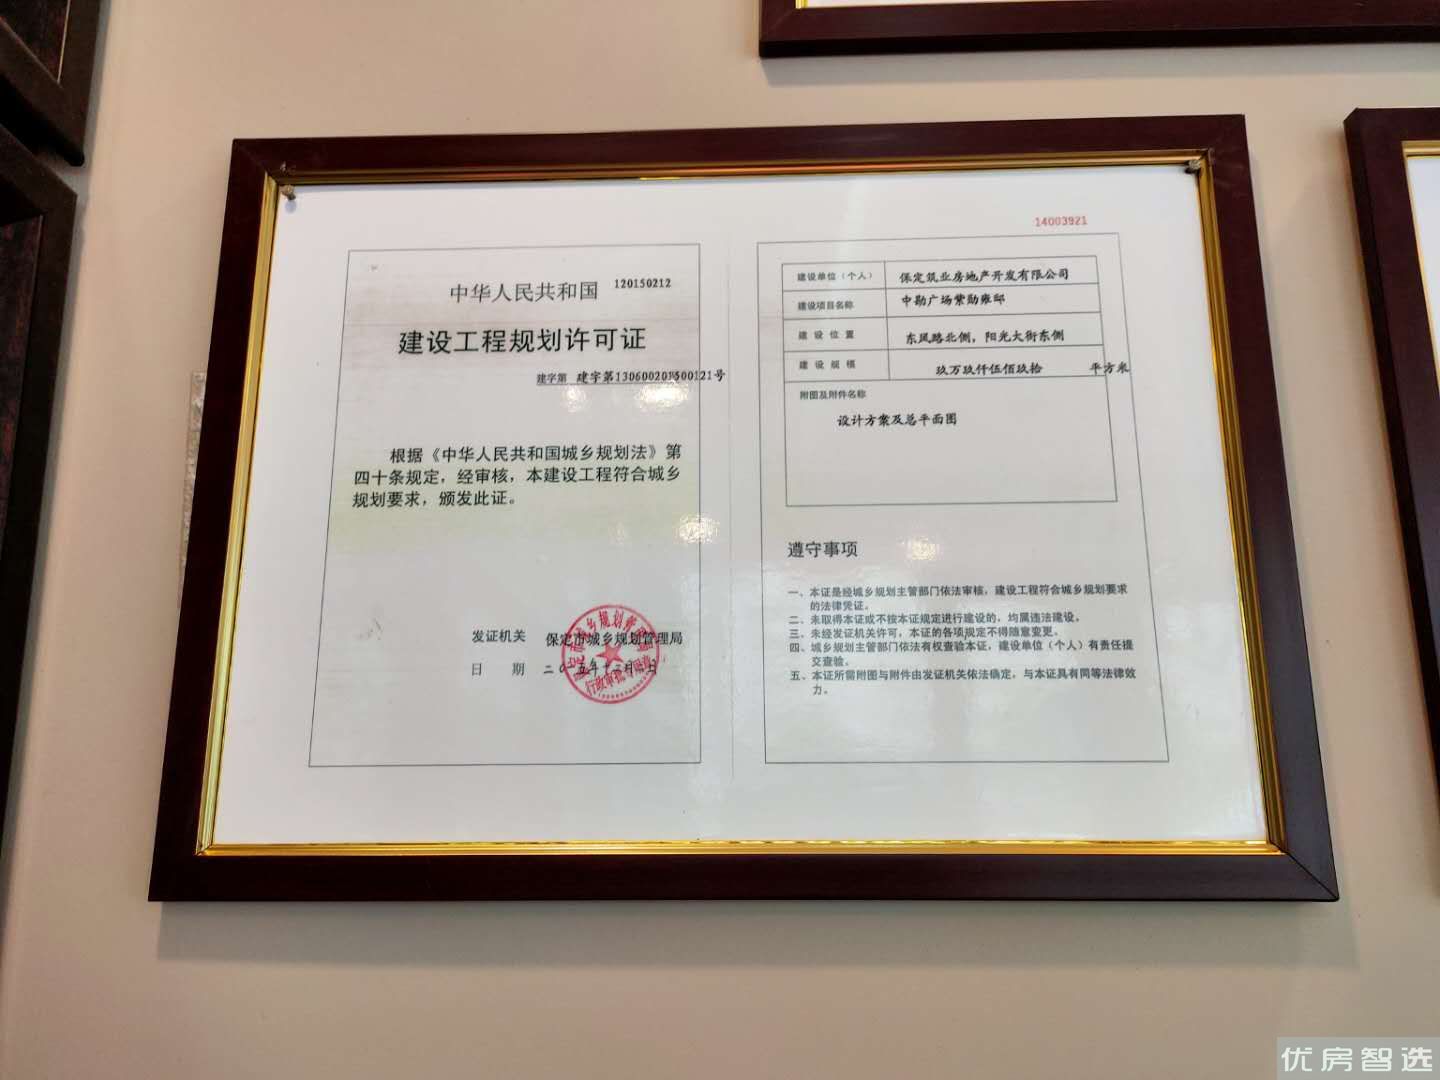 中华人民共和国 120150212
建设工程规划许可证
建字第 建字第130600201500121号
根据《中华人民共和国城乡规划法》第
四十条规定，经审核，本建设工程符合城乡
规划要求，颁发此证。
发证机关 保定市城乡规划管理局
日 期
14003921
建设单位（个人） 保定筑业房地产开发有限公司
建设项目名称 中勘广场紫勋雍邸
建设位置 东风路北侧，阳光大街东侧
建设规模 玖万玖仟伍佰玖拾 平方米
附图及附件名称
设计方案及总平面图
遵守事项
一、本证是经城乡规划主管部门依法审核，建设工程符合城乡规划要求
的法律凭证。
二、未取得本证或不按本证规定进行建设的，均属违法建设。
三、未经发证机关许可，本证的各项规定不得随意变更。
四、城乡规划主管部门依法有权查验本证，建设单位（个人）有责任提
交查验。
五、本证所需附图与附件由发证机关依法确定，与本证具有同等法律效
力。
优房智选